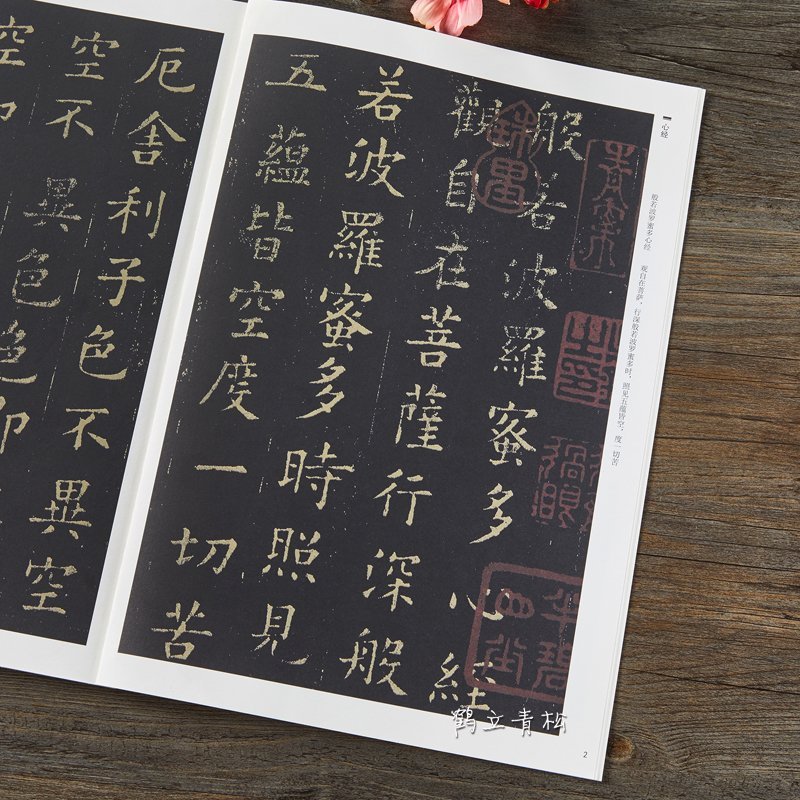 般若波羅蜜多心経
觀自在菩薩行深般
若波羅蜜多時照見
五蘊皆空度一切苦
厄舍利子色不異空
空不異色色即
心经
般若波罗蜜多心经 观自在菩萨，行深般若波罗蜜多时，照见五蕴皆空，度一切苦
2
鹤立青松